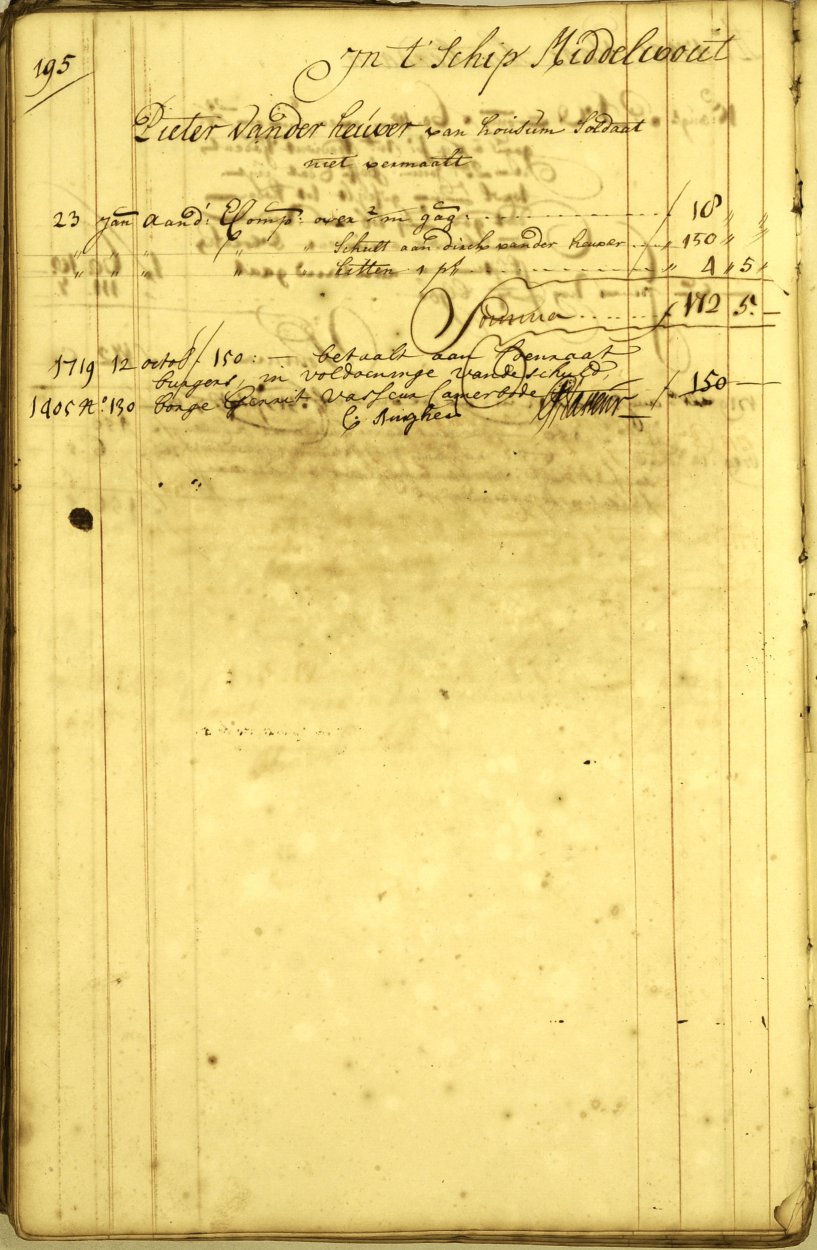 195
In 't Schip Middelwout
Pieter vander heuver van housum Soldaat
niet vermaakt
23 Jan aand: E Comp: over 2 m gag: ƒ 18 „ „
„ „ „ „ „ Schult aan dirck vander heuver „ 150 „ „
„ „ „ „ „ kitten 1 ps „ 4 „ 5 „
Somma ƒ 172 5 —
1719 12 octob ƒ 150: — betaalt aan Coenraat
burgers in voldoeninge vande schuld,
1405 No 130 borge Gerrit Vasseur Camerbode ƒ 150 —
C: